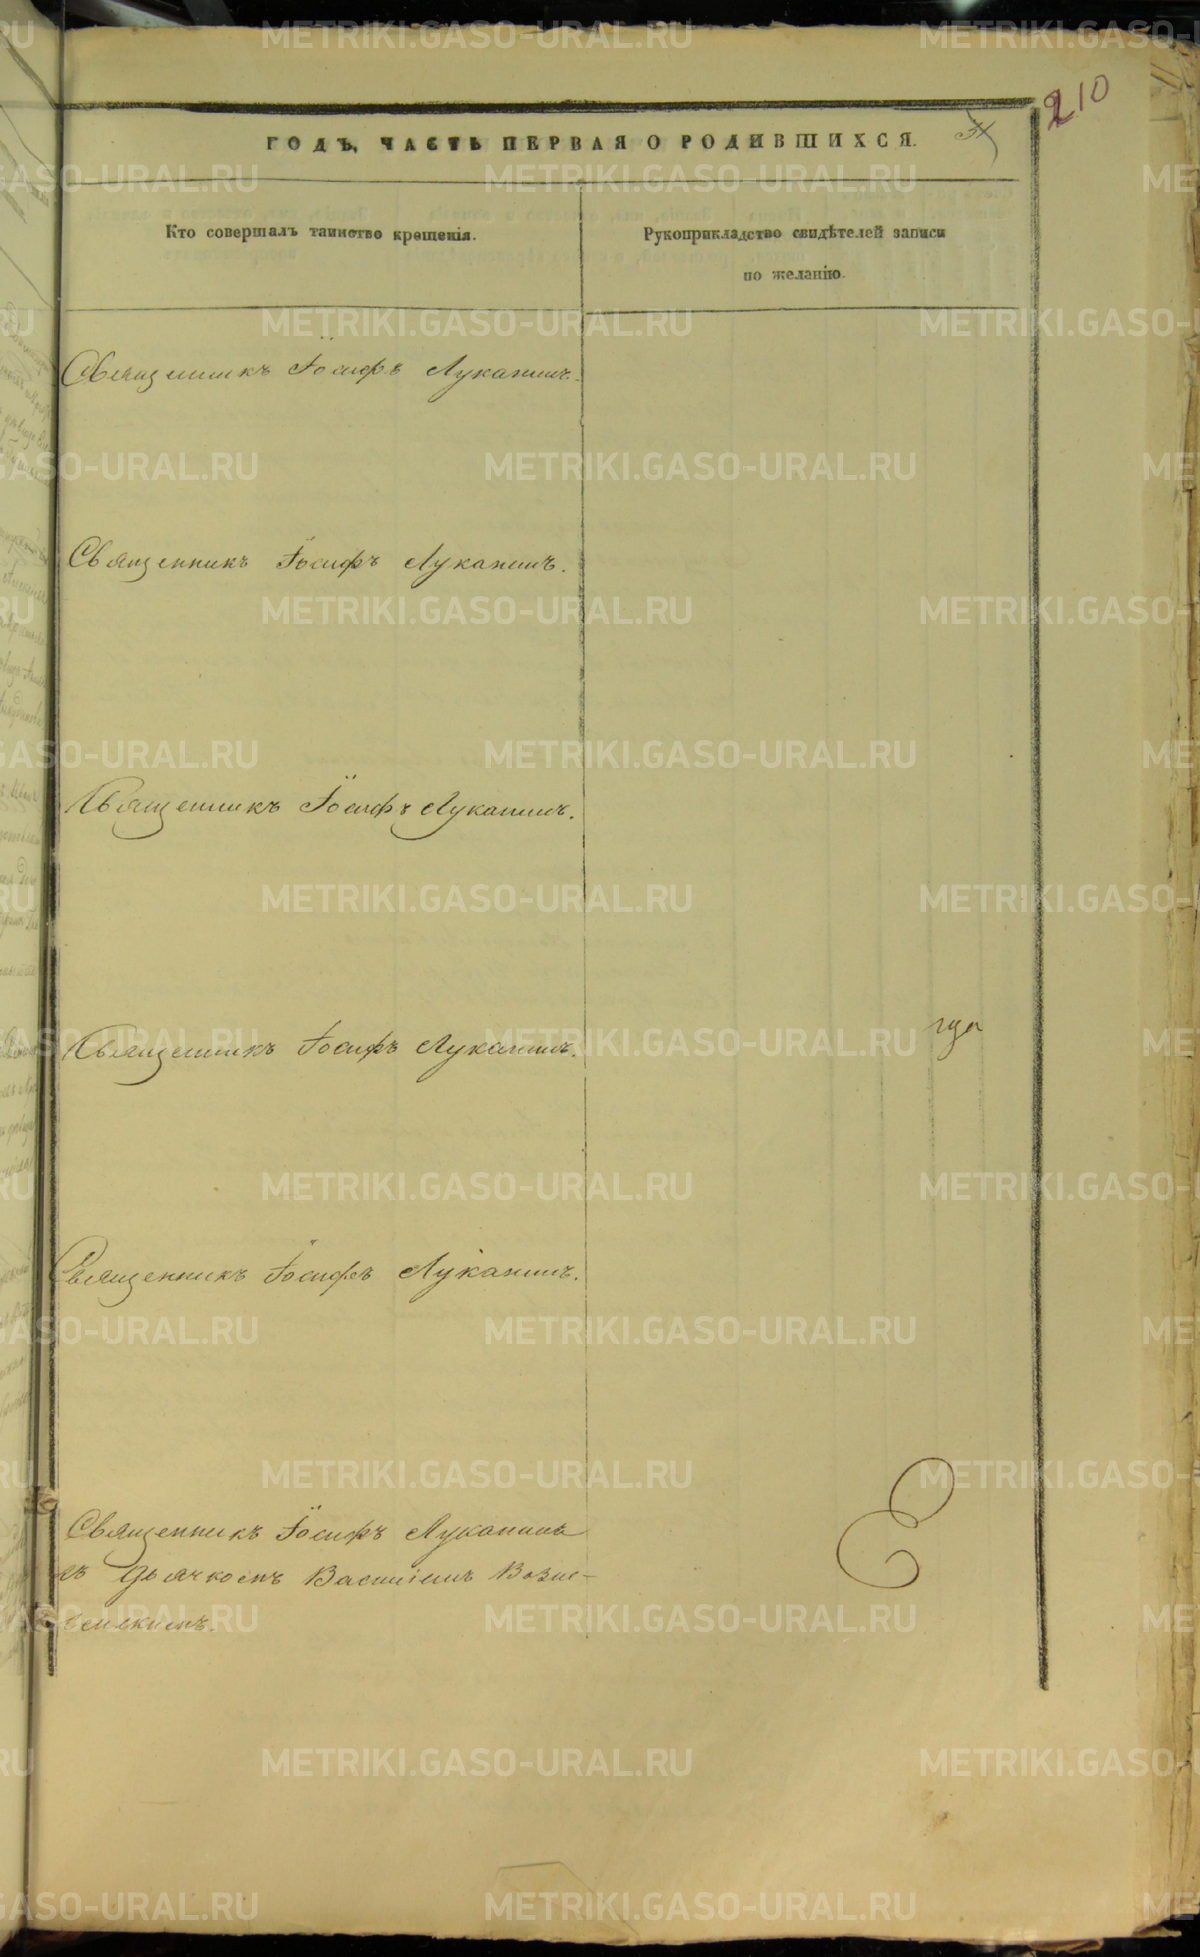 210
ГОДЪ, ЧАСТЬ ПЕРВАЯ О РОДИВШИХСЯ.
Кто совершалъ таинство крещенія.
Рукоприкладство свидѣтелей записи
по желанію.
Священникъ Іосифъ Луканинъ.
Священникъ Іосифъ Луканинъ.
Священникъ Іосифъ Луканинъ.
Священникъ Іосифъ Луканинъ.
Священникъ Іосифъ Луканинъ.
Священникъ Іосифъ Луканинъ
съ дьячкомъ Василіемъ Возне-
сенскимъ.
METRIKI.GASO-URAL.RU